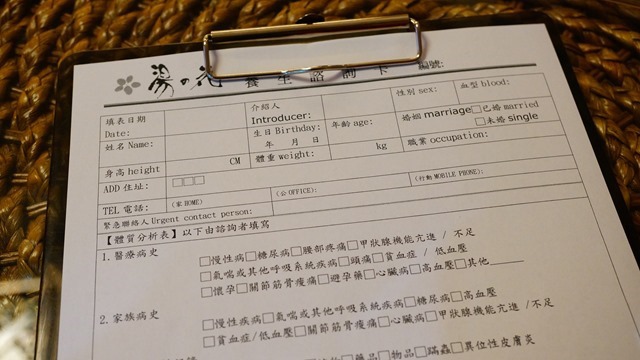 湯の花 養生諮詢卡 編號:
填表日期 Date: 介紹人 Introducer: 性別 sex: 血型 blood:
姓名 Name: 生日 Birthday: 年 月 日 年齡 age: 婚姻 marriage □已婚 married □未婚 single
身高 height CM 體重 weight: kg 職業 occupation:
ADD 住址: □□□
TEL 電話: (家 HOME) (公 OFFICE): (行動 MOBILE PHONE):
緊急聯絡人 Urgent contact person:
【體質分析表】以下由諮詢者填寫
1. 醫療病史 □慢性病□糖尿病□腰部疼痛□甲狀腺機能亢進 / 不足
□氣喘或其他呼吸系統疾病□頭痛□貧血症 / 低血壓
□懷孕□關節筋骨痠痛□避孕藥□心臟病□高血壓□其他
2. 家族病史 □慢性疾病□氣喘或其他呼吸系統疾病□糖尿病□高血壓
□貧血症/低血壓□關節筋骨痠痛□心臟病□甲狀腺機能亢進 /不足
□藥品□物品□蹣蟲□異位性皮膚炎